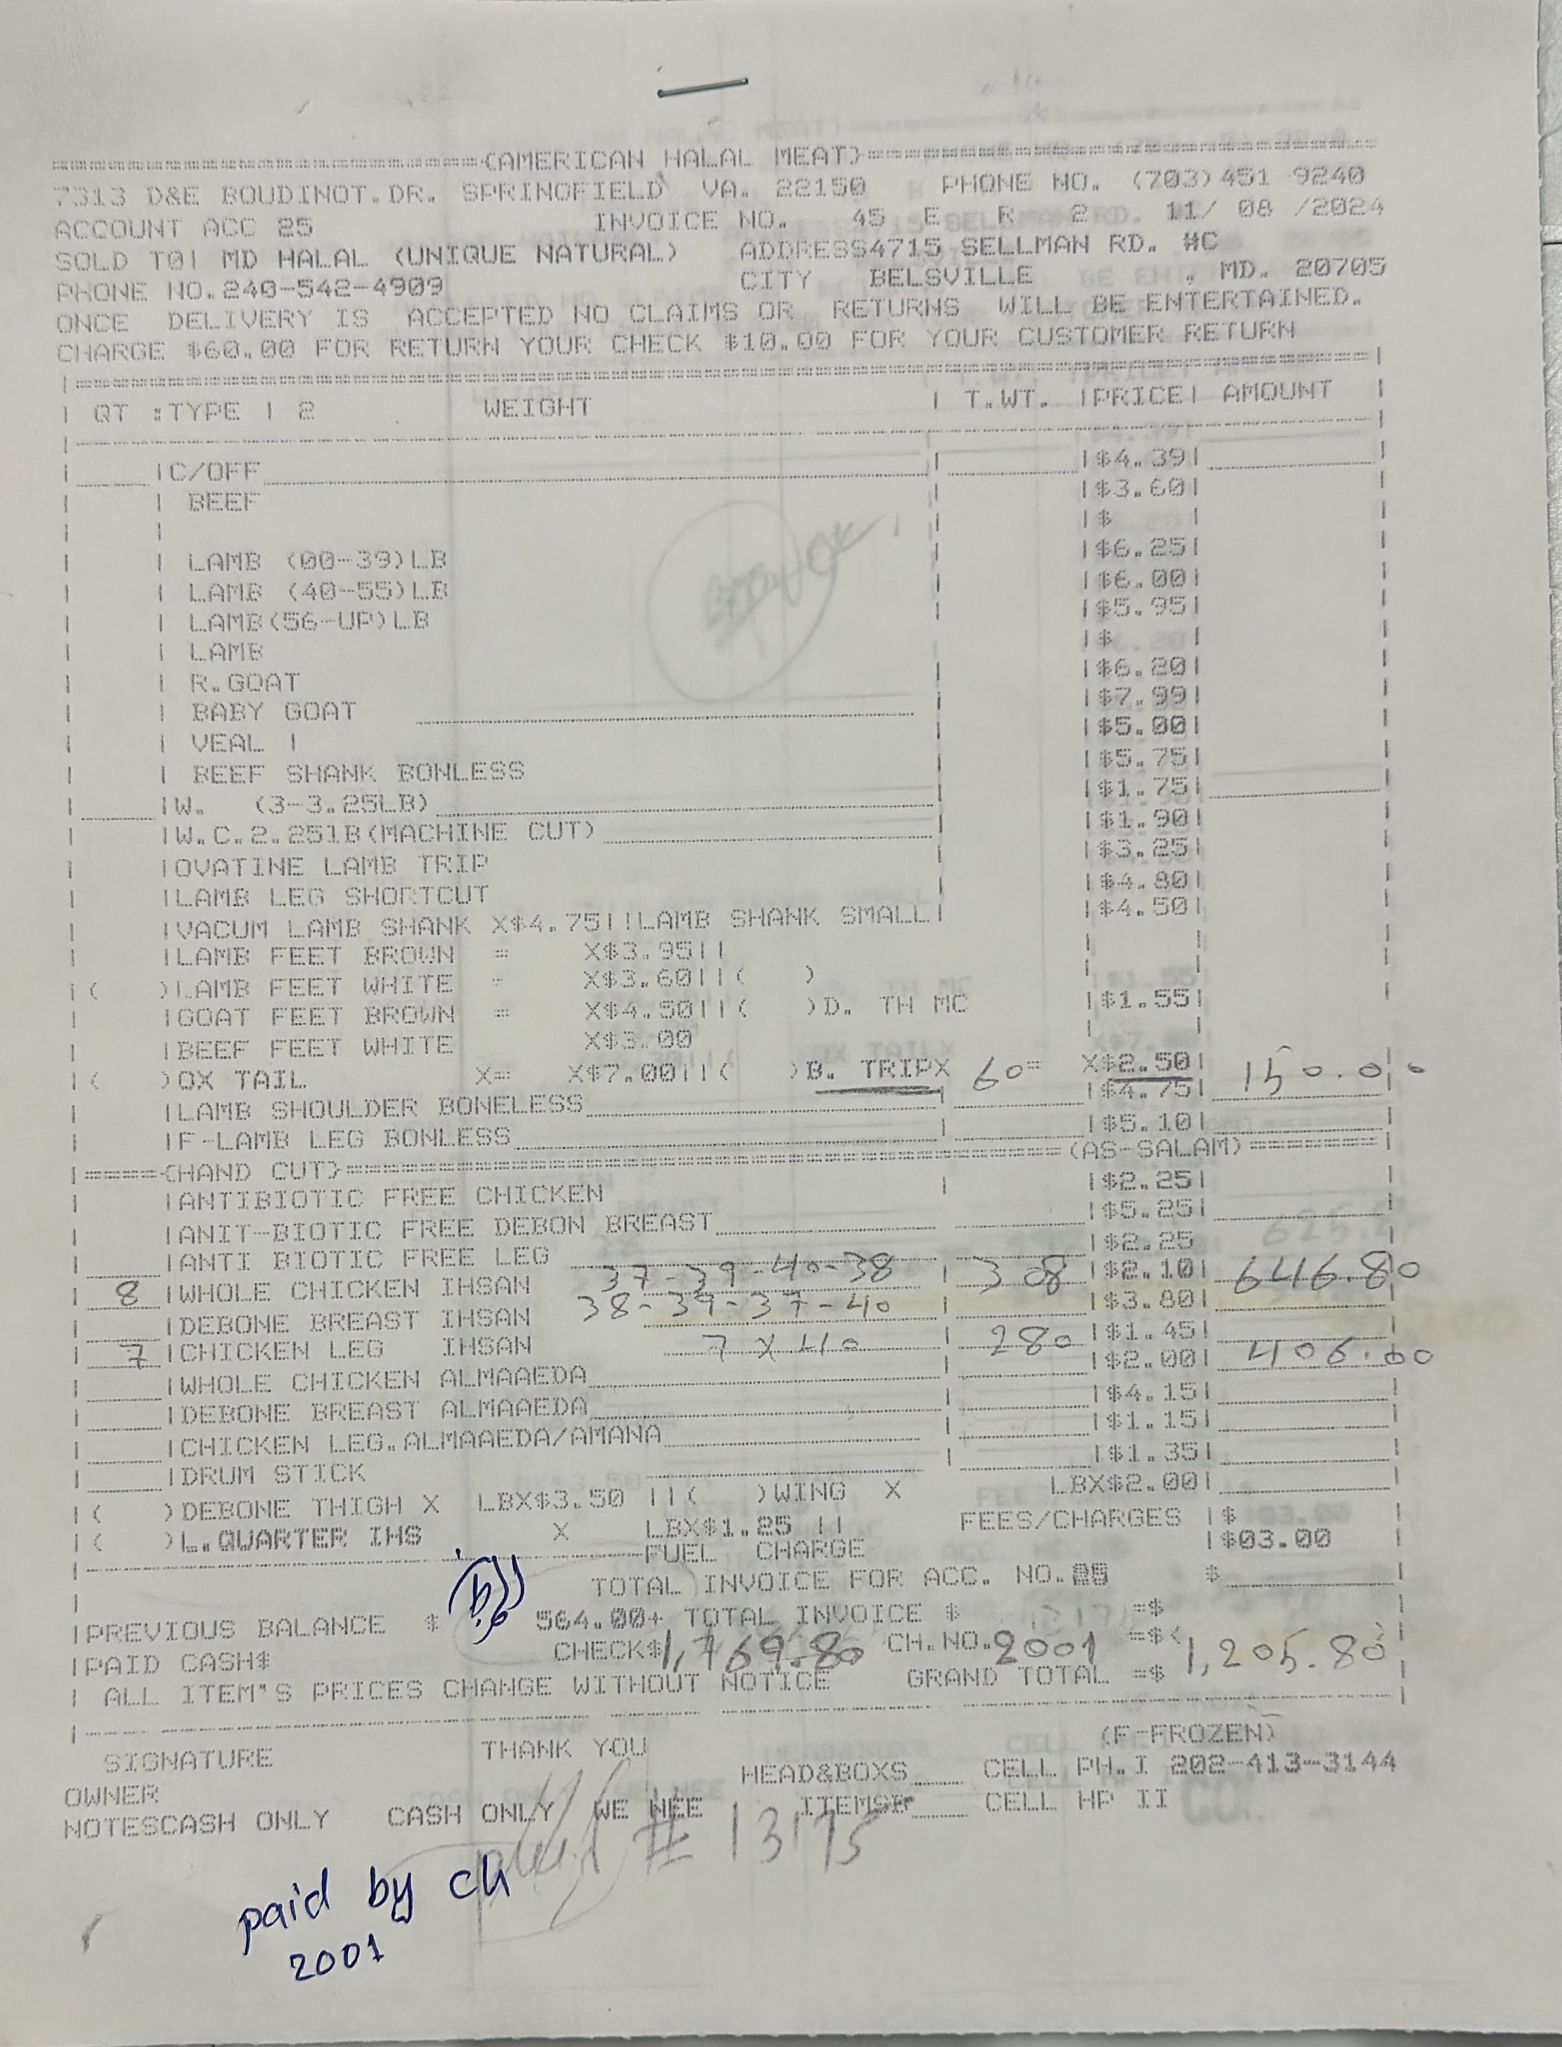 (AMERICAN HALAL MEAT)
7313 D&E BOUDINOT.DR. SPRINGFIELD VA. 22150 PHONE NO. (703)451 9240
ACCOUNT ACC 25 INVOICE NO. 45 E R 2 11/ 08 /2024
SOLD TO| MD HALAL (UNIQUE NATURAL) ADDRESS4715 SELLMAN RD. #C
PHONE NO.240-542-4909 CITY BELSVILLE , MD. 20705
ONCE DELIVERY IS ACCEPTED NO CLAIMS OR RETURNS WILL BE ENTERTAINED.
CHARGE $60.00 FOR RETURN YOUR CHECK $10.00 FOR YOUR CUSTOMER RETURN
| QT :TYPE | 2 WEIGHT | T.WT. |PRICE| AMOUNT
|C/OFF |$4.39|
| BEEF |$3.60|
|$ |
| LAMB (00-39)LB |$6.25|
| LAMB (40-55)LB |$6.00|
| LAMB(56-UP)LB |$5.95|
| LAMB |$ |
| R.GOAT |$6.20|
| BABY GOAT |$7.99|
| VEAL | |$5.00|
| BEEF SHANK BONLESS |$5.75|
|W. (3-3.25LB) |$1.75|
|W.C.2.25lB(MACHINE CUT) |$1.90|
|OVATINE LAMB TRIP |$3.25|
|LAMB LEG SHORTCUT |$4.80|
|VACUM LAMB SHANK X$4.75||LAMB SHANK SMALL| |$4.50|
|LAMB FEET BROWN = X$3.95||
|( )LAMB FEET WHITE = X$3.60||( )
|GOAT FEET BROWN = X$4.50||( )D. TH MC |$1.55|
|BEEF FEET WHITE X$3.00
|( )OX TAIL X= X$7.00||( )B. TRIPX 60= X$2.50| 150.00
|LAMB SHOULDER BONELESS |$4.75|
|F-LAMB LEG BONLESS |$5.10|
|=====(HAND CUT)=====(AS-SALAM)=======|
|ANTIBIOTIC FREE CHICKEN |$2.25|
|ANIT-BIOTIC FREE DEBON BREAST |$5.25|
|ANTI BIOTIC FREE LEG |$2.25
8 |WHOLE CHICKEN IHSAN 37-39-40-38 | 308 |$2.10| 646.80
|DEBONE BREAST IHSAN 38-39-37-40 |$3.80|
7 |CHICKEN LEG IHSAN 7 X 40 | 280 |$1.45| 406.00
|WHOLE CHICKEN ALMAAEDA |$2.00|
|DEBONE BREAST ALMAAEDA |$4.15|
|CHICKEN LEG.ALMAAEDA/AMANA |$1.15|
|DRUM STICK |$1.35|
|( )DEBONE THIGH X LBX$3.50 ||( )WING X LBX$2.00|
|( )L.QUARTER IHS X LBX$1.25 || FEES/CHARGES |$
FUEL CHARGE |$03.00
TOTAL INVOICE FOR ACC. NO.25 $
|PREVIOUS BALANCE $ 564.00+ TOTAL INVOICE $ =$
|PAID CASH$ CHECK$1,769.80 CH.NO.2001 =$ 1,205.80
| ALL ITEM'S PRICES CHANGE WITHOUT NOTICE GRAND TOTAL =$
(F-FROZEN)
SIGNATURE THANK YOU HEAD&BOXS CELL PH.I 202-413-3144
OWNER
NOTESCASH ONLY CASH ONLY WE NEE ITEMS# CELL HP II
# 13175
paid by ch
2001